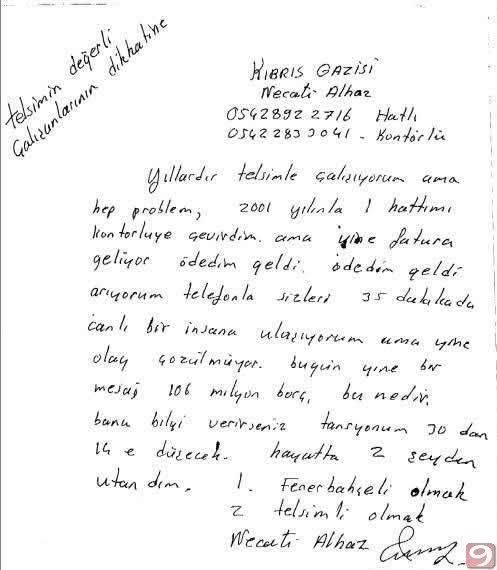 telsimin değerli
çalışanlarının dikkatine
KIBRIS GAZİSİ
Necati Alhaz
0542892 2716 Hatlı
0542283 3041 - Kontörlü
Yıllardır telsimle çalışıyorum ama
hep problem, 2001 yılında 1 hattımı
kontorluye çevirdim. ama yine fatura
geliyor ödedim geldi. ödedim geldi
arıyorum telefonla sizleri 35 dakikada
canlı bir insana ulaşıyorum ama yine
olay çözülmüyor. bugün yine bir
mesaj 106 milyon borç, bu nedir.
bana bilgi verirseniz tansiyonum 30 dan
14 e düşecek. hayatta 2 şeyden
utandım. 1. Fenerbahçeli olmak
2 telsimli olmak
Necati Alhaz
9